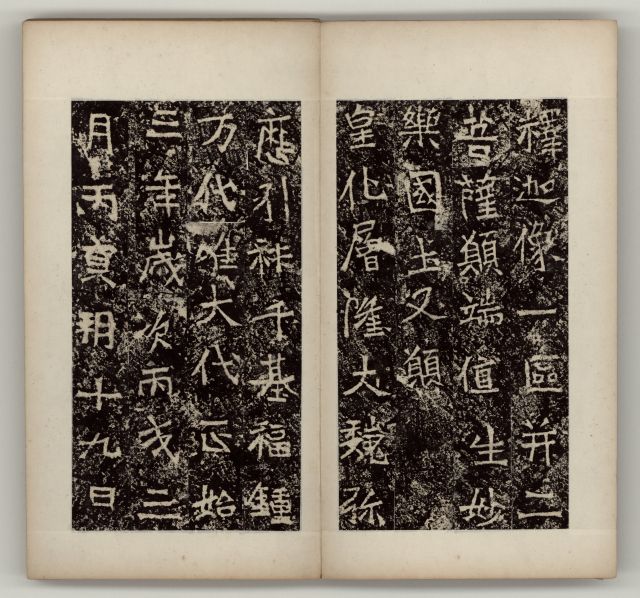 釋迦像一區并二
菩薩願端值生妙
樂國土又願
皇化層隆大魏弥
歷引祚千基福鍾
万代唯大代正始
三年歲次丙戌三
月丙寅朔十九日